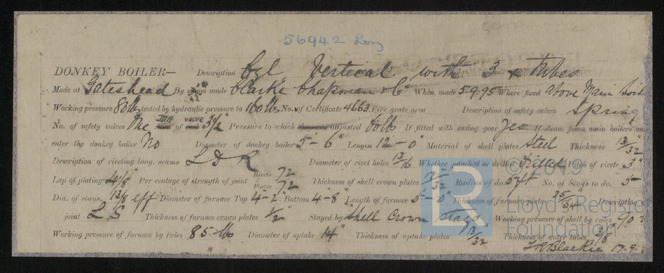 56942 Iron
DONKEY BOILER— Description Cyl. Vertical with 3 x tubes
Made at Gateshead By whom made Clarke Chapman & Co When made 5.9.95 Where fixed Above Main boil
Working pressure 80 lb tested by hydraulic pressure to 160 lb No. of Certificate 4663 Fire grate area Description of safety valves Spring
No. of safety valves One Pressure to which adjusted If fitted with easing gear Yes If steam from main boilers can
enter the donkey boiler No Diameter of donkey boiler 5'-6" Length 12'-0" Material of shell plates Steel Thickness 13/32
Description of riveting long. seams L D R Diameter of rivet holes 13/16 Whether punched or drilled Drilled Pitch of rivets 3"
Lap of plating 4 1/8 Per centage of strength of joint Rivets 72 Plates 72 Thickness of shell crown plates Radius of do. No. of Stays to do. 5
Dia. of stays eff Diameter of furnace Top 4'-2" Bottom 4'-8" Length of furnace 5'-0" Thickness of furnace plates Description of
joint L S Thickness of furnace crown plates 1/2 Stayed by Shell Crown Stays Working pressure of shell by rules
Working pressure of furnace by rules 85 lb Diameter of uptake 14" Thickness of uptake plates 13/32 Thickness of water tubes
© 2019
LR
Lloyd's Register
Foundation